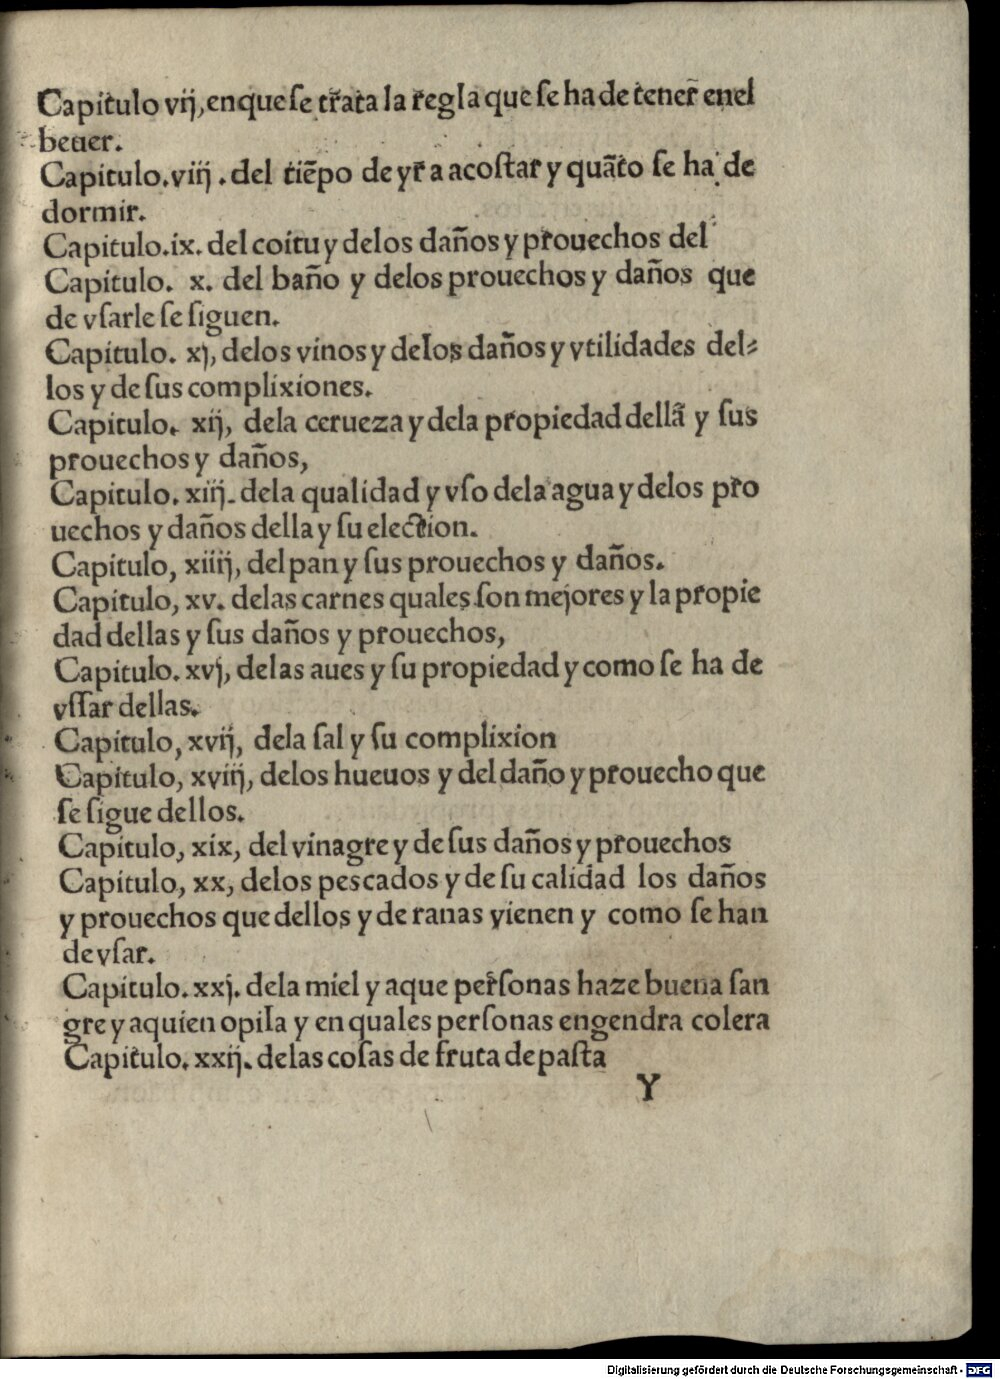 Capitulo vij, enque ſe trata la regla que ſe ha de tener enel
beuer.
Capitulo.viij.del tiẽpo de yr a acoſtar y quãto ſe ha de
dormir.
Capitulo.ix. del coitu y delos daños y prouechos del
Capitulo. x. del baño y delos prouechos y daños que
de vſarle ſe ſiguen.
Capitulo. xj, delos vinos y delos daños y vtilidades del⸗
los y de ſus complixiones.
Capitulo. xij, dela cerueza y dela propiedad dellã y ſus
prouechos y daños,
Capitulo. xiij. dela qualidad y vſo dela agua y delos pro
uechos y daños della y ſu election.
Capitulo, xiiij, del pan y ſus prouechos y daños.
Capitulo, xv. delas carnes quales ſon mejores y la propie
dad dellas y ſus daños y prouechos,
Capitulo. xvj, delas aues y ſu propiedad y como ſe ha de
vſſar dellas.
Capitulo, xvij, dela ſal y ſu complixion
Capitulo, xviij, delos hueuos y del daño y prouecho que
ſe ſigue dellos.
Capitulo, xix, del vinagre y de ſus daños y prouechos
Capitulo, xx, delos peſcados y de ſu calidad los daños
y prouechos que dellos y de ranas vienen y como ſe han
de vſar.
Capitulo.xxj. dela miel y aque perſonas haze buena ſan
gre y aquien opila y en quales perſonas engendra colera
Capitulo.xxij. delas coſas de fruta de paſta
Y
Digitalisierung gefördert durch die Deutsche Forschungsgemeinschaft - DFG